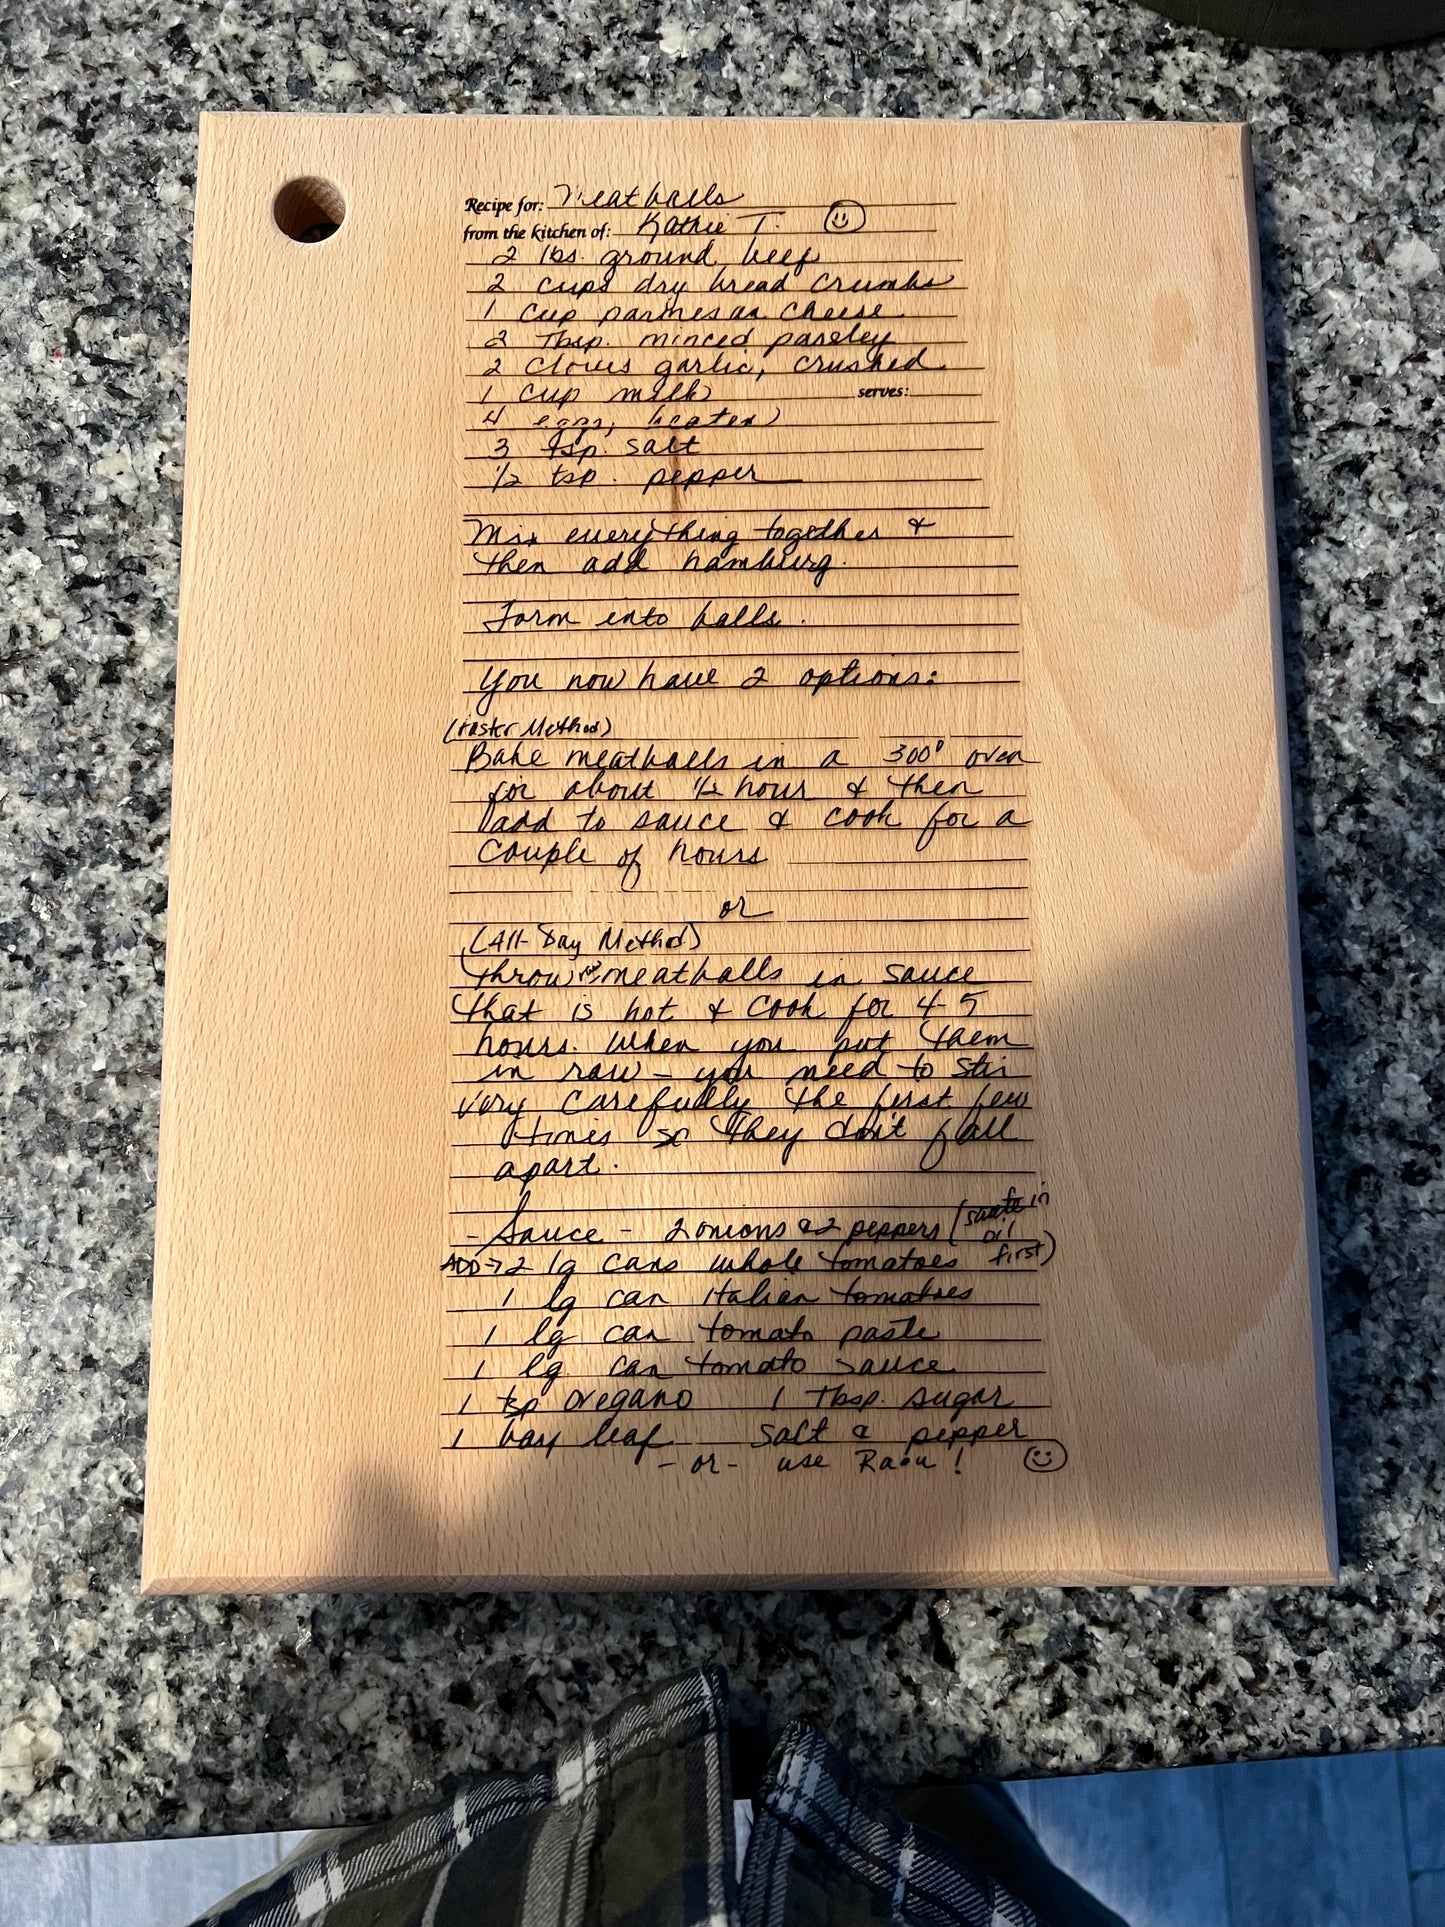 Recipe for: Meatballs
from the kitchen of: Kathie T.
2 lbs. ground beef
2 cups dry bread crumbs
1 cup parmesan cheese
2 Tbsp. minced parsley
2 cloves garlic, crushed
1 cup milk serves:
4 eggs, beaten
3 tsp. salt
1/2 tsp. pepper
Mix everything together &
then add hamburg.
Form into balls.
You now have 2 options:
(Faster Method)
Bake meatballs in a 300° oven
for about 1/2 hour & then
add to sauce & cook for a
couple of hours
or
(All-Day Method)
throw raw meatballs in sauce
that is hot & cook for 4-5
hours. When you put them
in raw - you need to stir
very carefully the first few
times so they don't fall
apart.
- Sauce - 2 onions & 2 peppers (saute in oil first)
ADD → 2 lg cans whole tomatoes
1 lg can Italian tomatoes
1 lg can tomato paste
1 lg. can tomato sauce
1 tsp oregano 1 Tbsp. sugar
1 bay leaf salt & pepper
- or - use Raou!